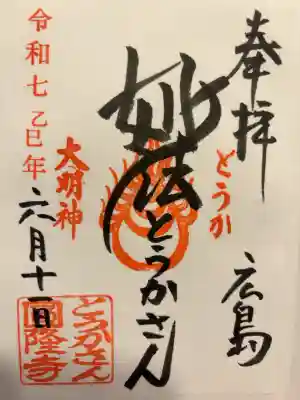 奉拝
どうか
広島
妙法とうかさん
大明神
令和七乙巳年
六月十一日
とうかさん
圓隆寺